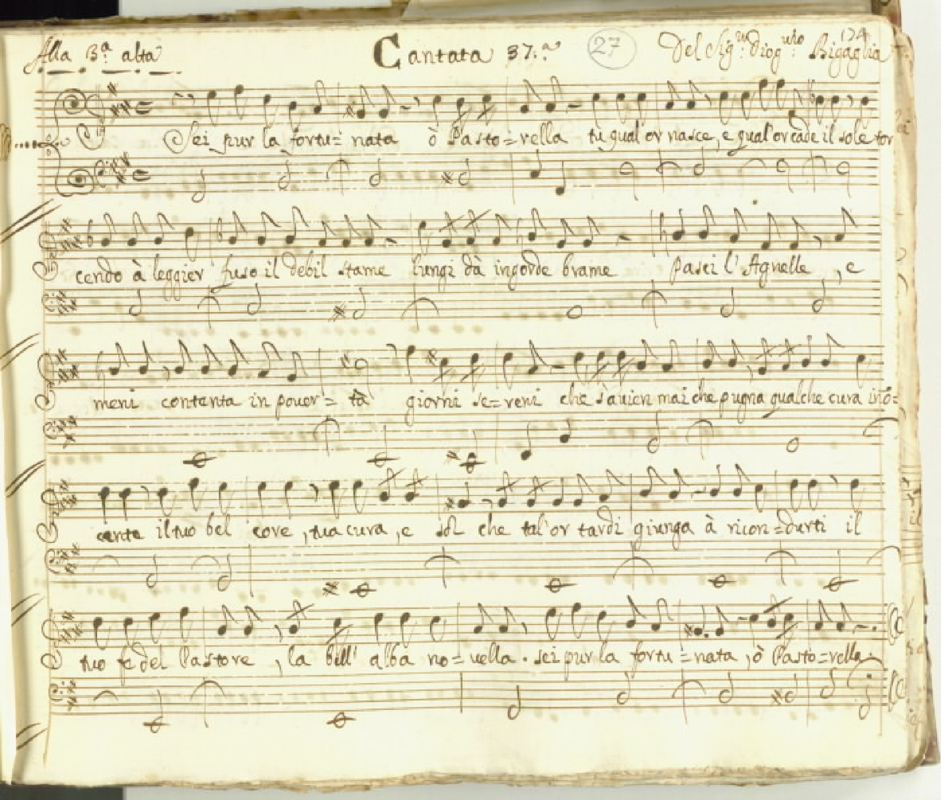 Alla 3.ª alta Cantata 37.ª 27 Del Sig.r Diog.nio Bigaglia 174
Sei pur la fortu= nata ò Pasto=rella tu qual'or nasce, e qual'or cade il sole tor
cendo à leggier fuso il debil stame lungi dà ingorde brame pasci l'Agnelle, e
meni contenta in pover=tà giorni se=reni che s'avien mai che pugna qualche cura
cente il tuo bel core, tua cura, e sol che tal'or tardi giunga à ricon=durti il
tuo fedel Pastore, la bell'alba no=vella. sei pur la fortu=nata, ò Pasto=rella.